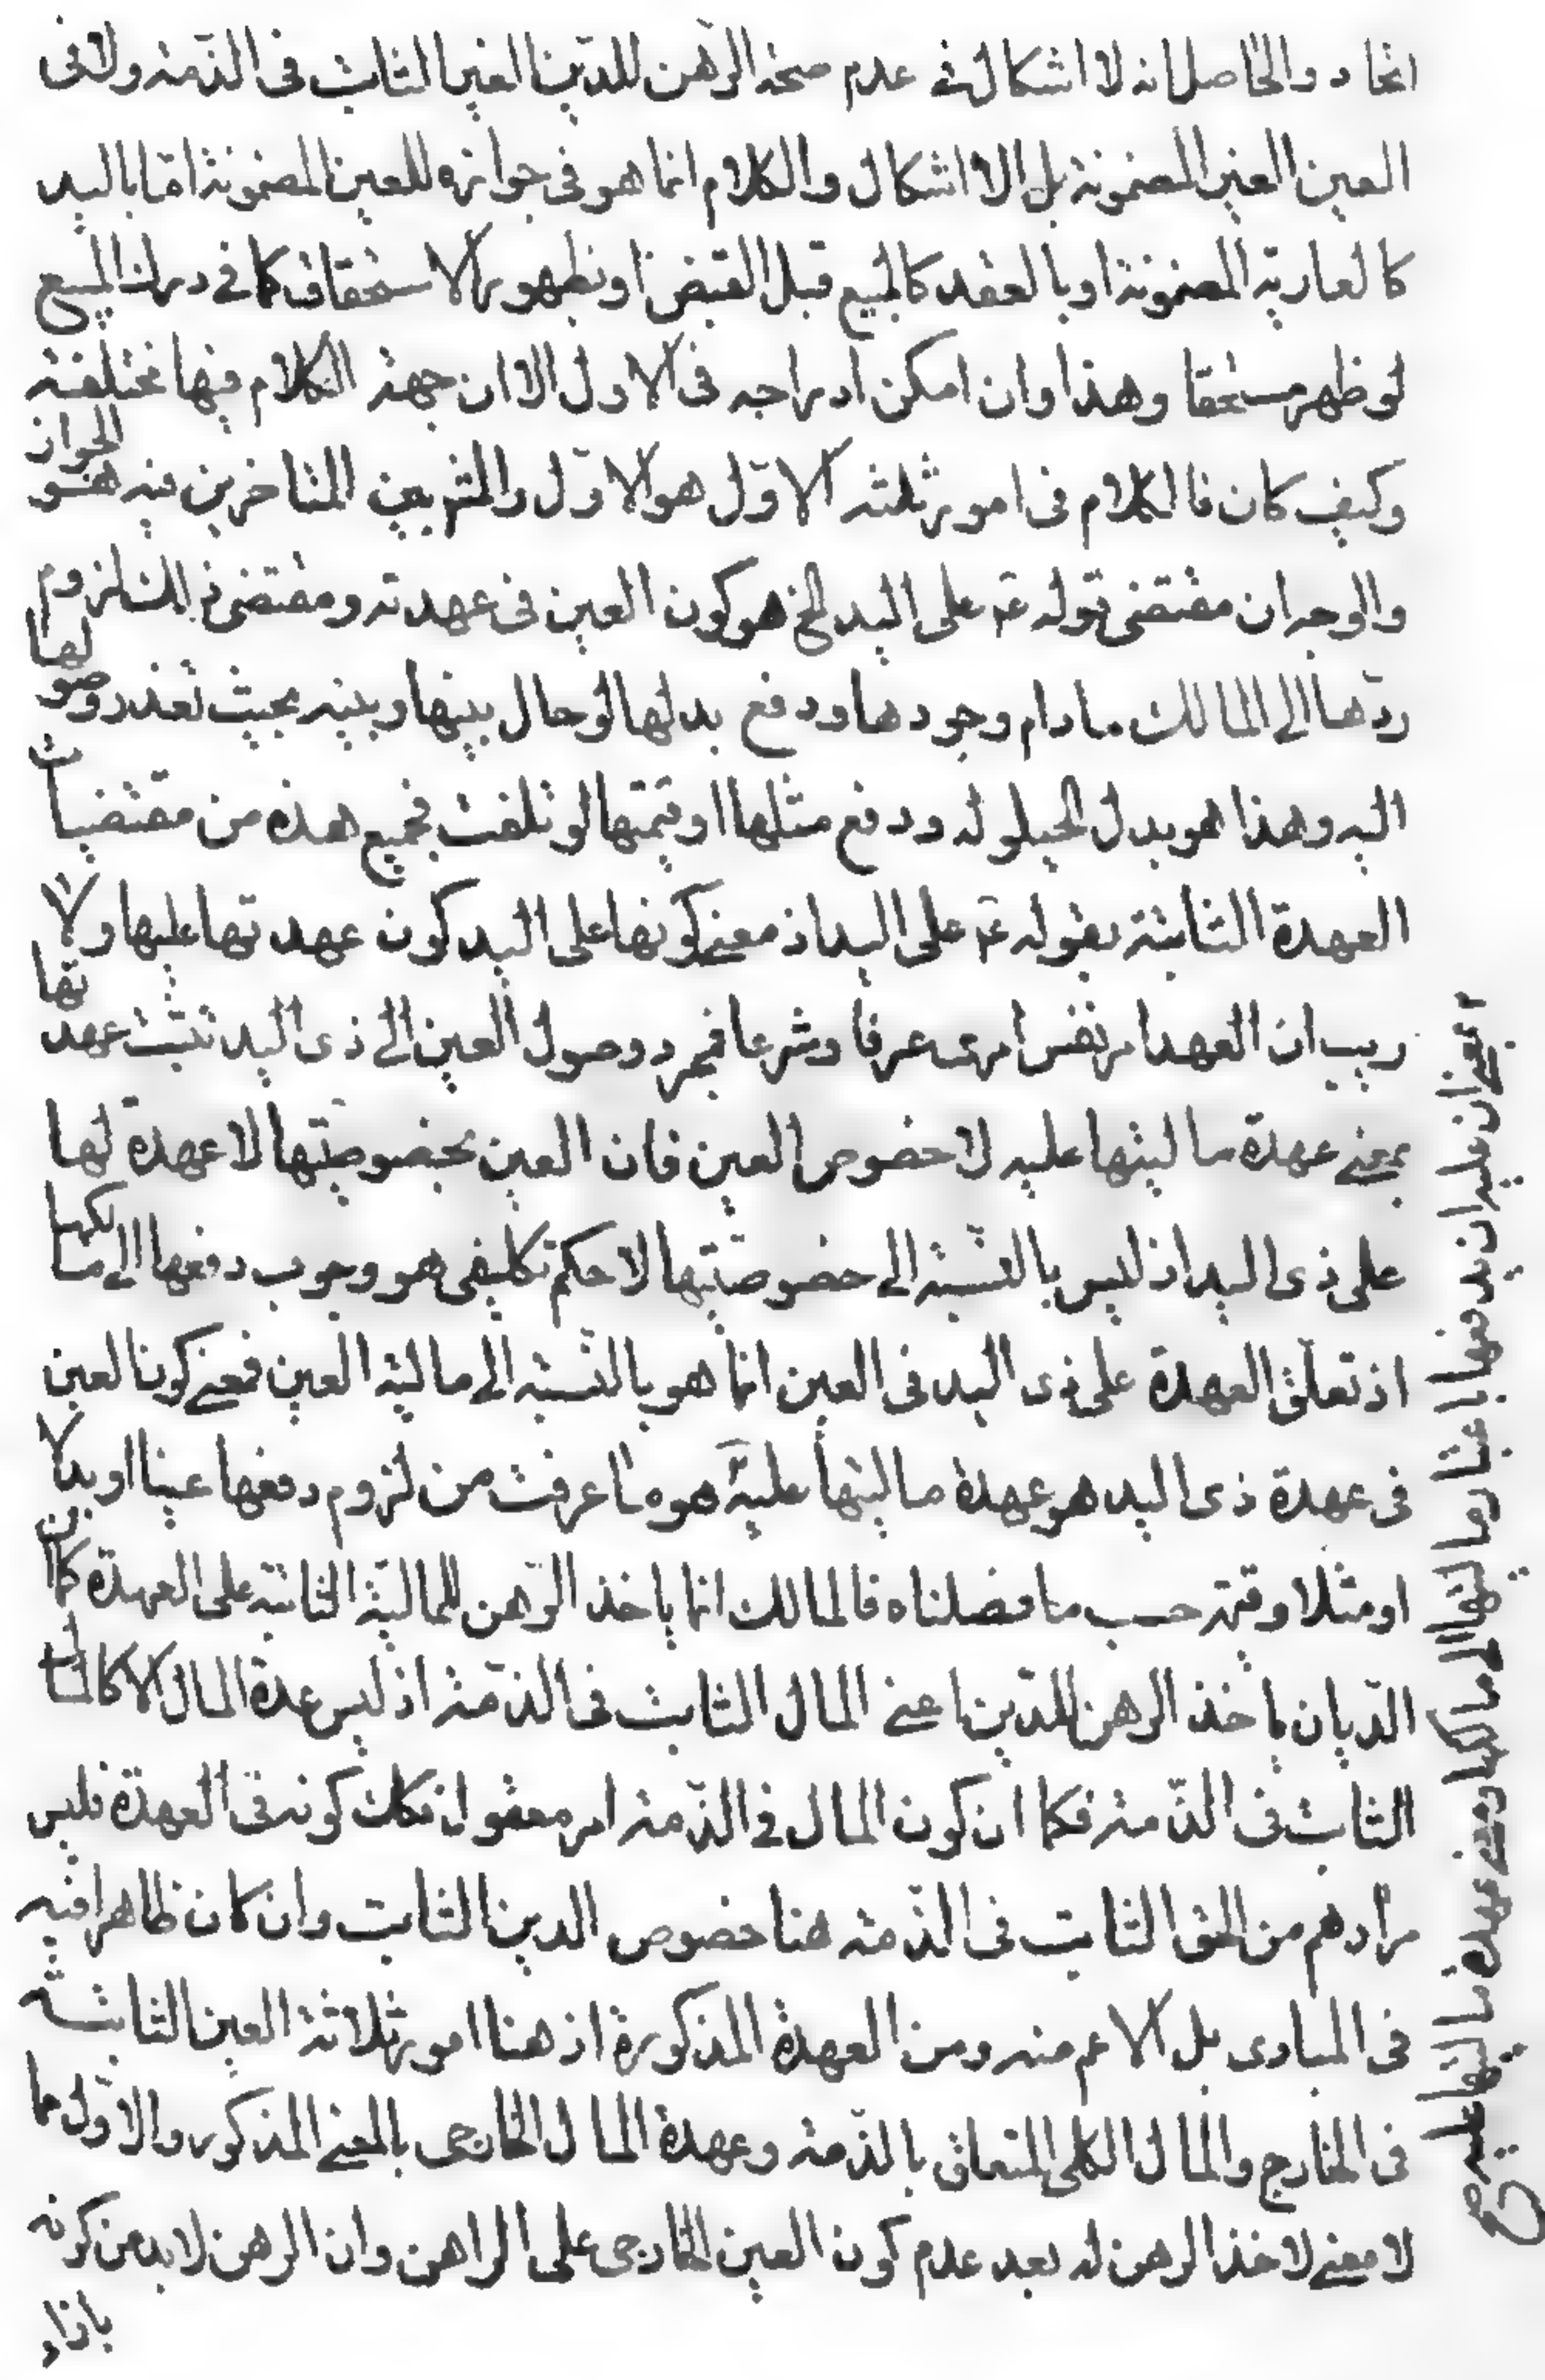 اتحاد والحاصل انه لا اشكال في عدم صحة الرهن للدين الغير الثابت فى الذمة ولا فى
العين الغير المضمونة بل الاشكال والكلام انما هو فى جوازه للعين المضمونة اما باليد
كالعارية المضمونة او بالعقد كالمبيع قبل القبض او بظهور الاستحقاق كما في درك المبيع
لو ظهر مستحقا وهذا وان امكن ادراجه فى الاول الا ان جهة الكلام فيها مختلفة
وكيف كان فالكلام فى امور ثلثه الاول هو الاول والمشهور بين المتاخرين فيه هو الجواز
والوجه ان مقتضى قوله ع على اليد الخ هو كون العين فى عهدته ومقتضى ذلك لزوم
ردها الى المالك ما دام وجودها ودفع بدلها لو حال بينها وبينه بحيث تعذر وصولها
اليه وهذا هو بدل الحيلوله ودفع مثلها او قيمتها لو تلفت فجميع هذه من مقتضيات
العهدة الثابتة بقوله ع على اليد اذ معنى كونها على اليد كون عهدتها عليها ولا
ريب ان العهدة امر نفس امرى عرفا وشرعا فبمجرد وصول العين الى ذى اليد تثبت عهدتها
بمعنى عهدة ماليتها عليه لا خصوص العين فان العين بخصوصيتها لا عهدة لها
على ذى اليد اذ ليس بالنسبة الى خصوصيتها الا حكم تكليفى هو وجوب دفعها الى مالكها
اذ تعلق العهدة على ذى اليد فى العين انما هو بالنسبة الى مالية العين فمعنى كون العين
فى عهدة ذى اليد هو عهدة ماليتها عليه هو ما عرفت من لزوم دفعها عينا او بدلا
او مثلا او قيمة حسب ما فصلناه فالمالك انما ياخذ الرهن للمالية الثابتة على العهدة كما ان
الديان ياخذ الرهن للدين اعنى المال الثابت فى الذمة اذ ليس عهدة المال الا كالمال
الثابت فى الذمة فكما ان كون المال في الذمة امر معقول فكك كونه فى العهدة فليس
مرادهم من الحق الثابت فى الذمة هنا خصوص الدين الثابت وان كان ظاهرا فيه
فى المبادى بل الاعم منه ومن العهدة المذكورة اذ هنا امور ثلاثة العين الثابتة
فى الخارج والمال الكلى المتعلق بالذمة وعهدة المال الخارجى بالمعنى المذكور والاول مما
لا معنى لاخذ الرهن له بعد عدم كون العين الخارجى على الراهن وان الرهن لا بد من كونه
بازاء
بمعنى ان عليه ان يدفعها باعتبار ماليتها الى مالكها ومعنى عهدة ماليتها عليه صح